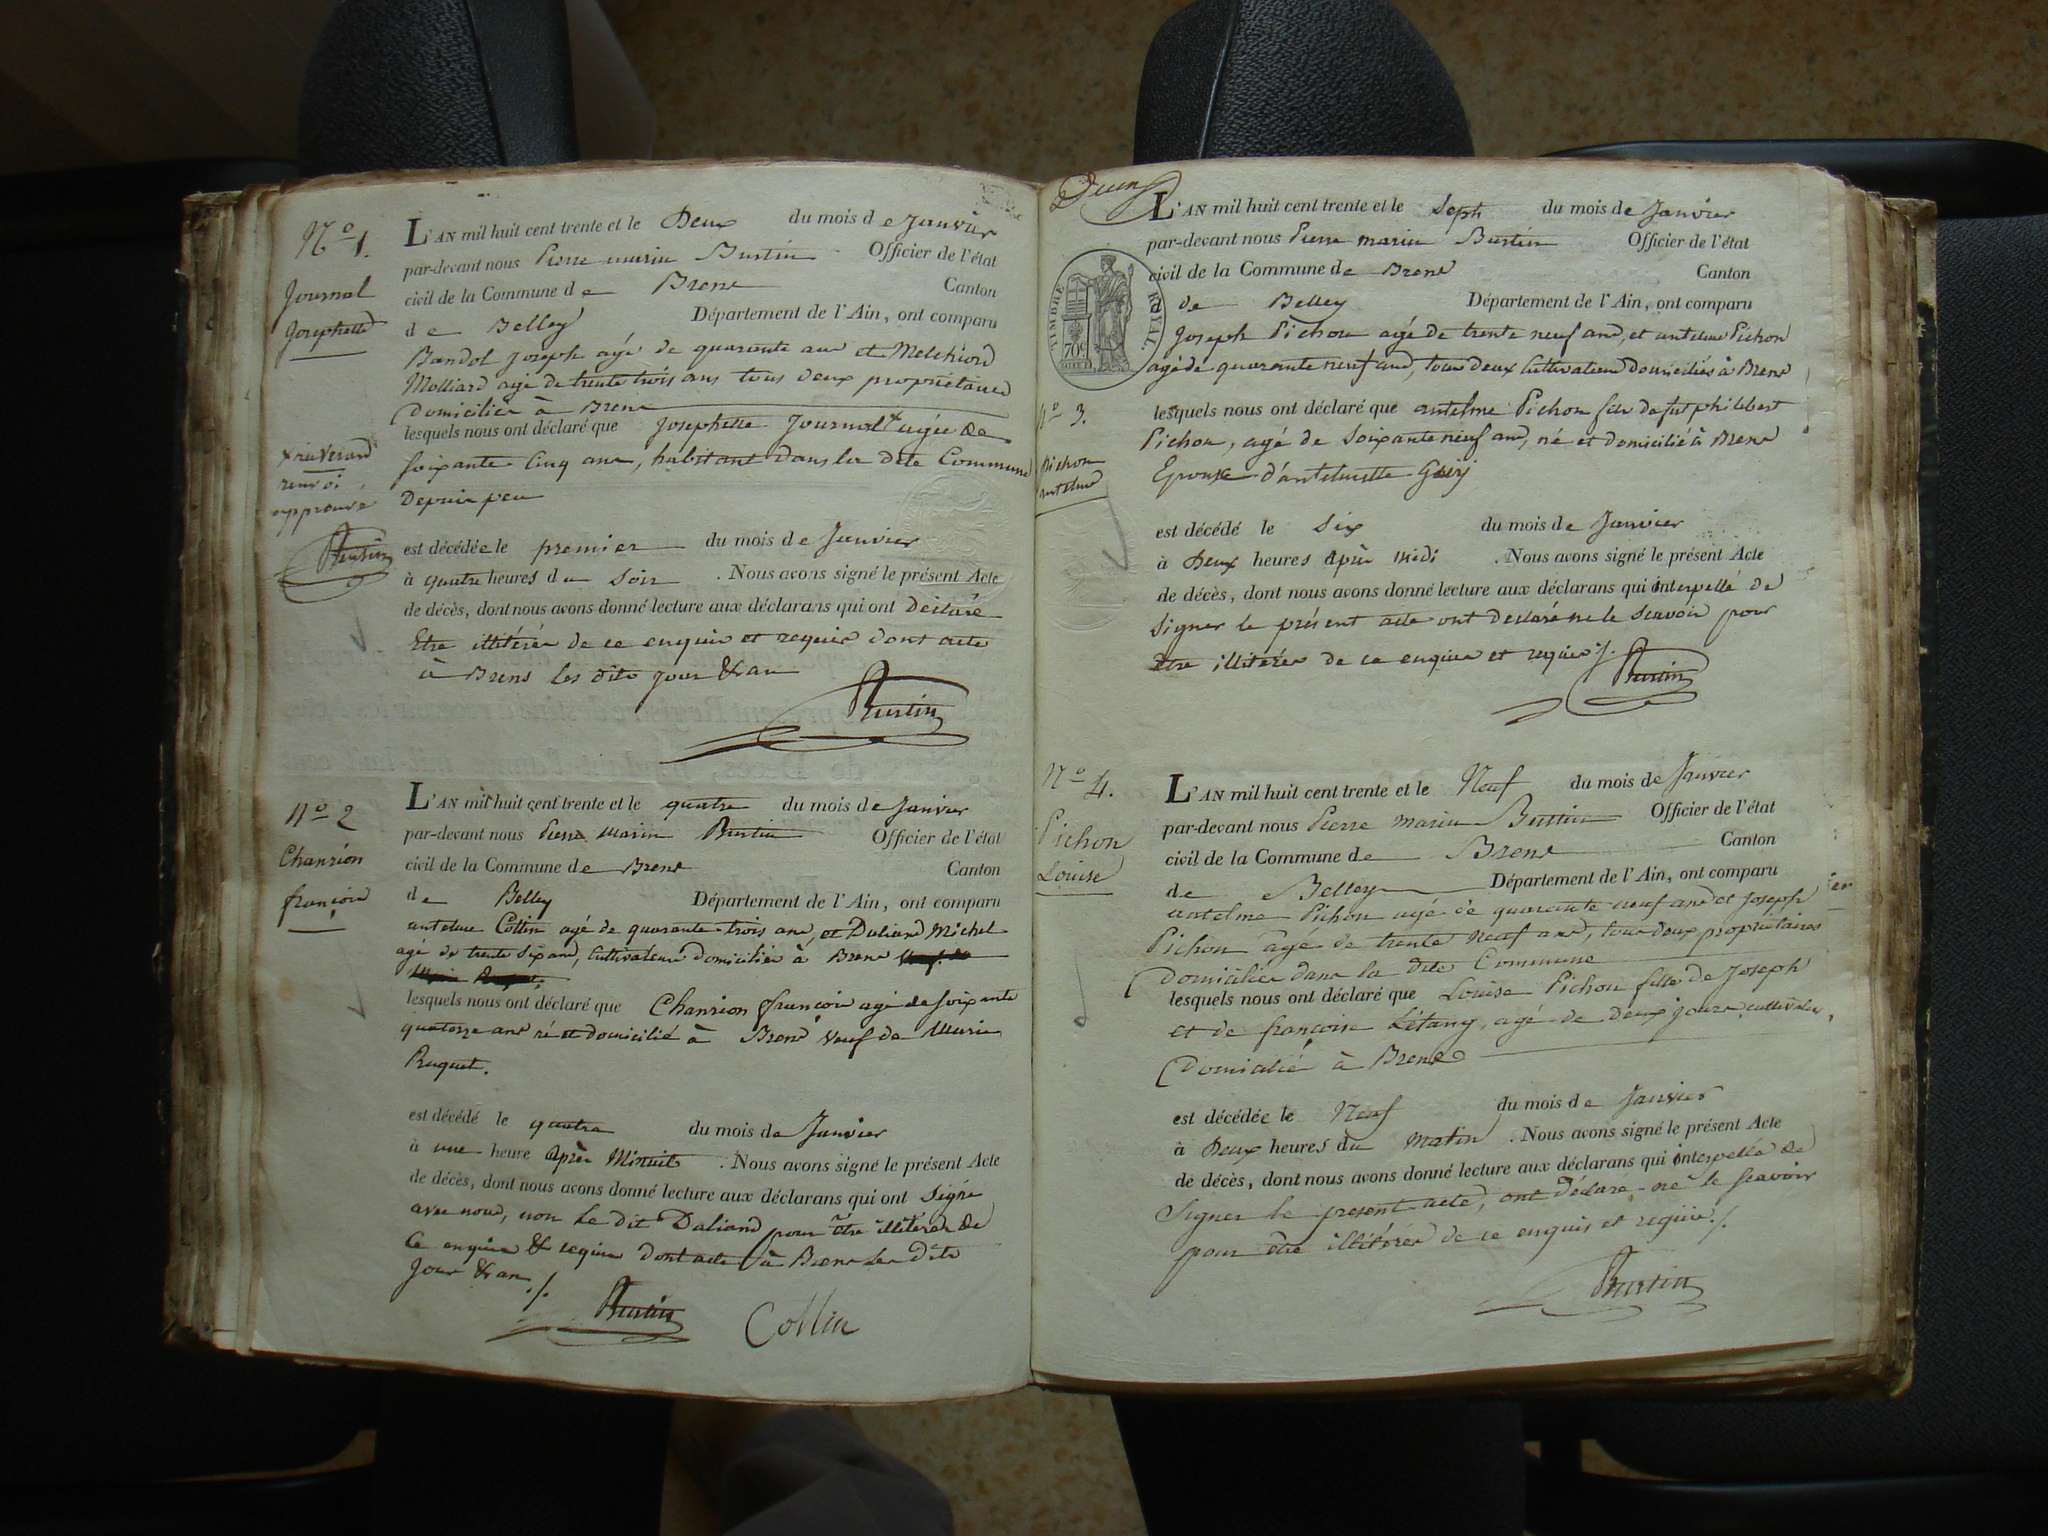 N.o 1.
Journal
Josephette
L'AN mil huit cent trente et le Deux du mois de Janvier
par-devant nous Pierre marin Burtin Officier de l'état
civil de la Commune de Brens Canton
de Belley Département de l'Ain, ont comparu
Bandol Joseph agé de quarante ans et Melchiord
Molliard agé de trente trois ans tous deux propriétaires
Domiciliés à Brens
lesquels nous ont déclaré que Josephette Journal x agée de
soixante Cinq ans, habitant dans la dite Commune
Depuis peu
renvoi
approuvé
Burtin
est décédée le premier du mois de Janvier
à quatre heures du Soir . Nous avons signé le présent Acte
de décès, dont nous avons donné lecture aux déclarans qui ont déclaré
Etre illitérés de ce enquis et requis dont acte
à Brens les dits jour & an
Burtin
N.o 2
Chanrion
françois
L'AN mil huit cent trente et le quatre du mois de Janvier
par-devant nous Pierre Marin Burtin Officier de l'état
civil de la Commune de Brens Canton
de Belley Département de l'Ain, ont comparu
antelme Collin agé de quarante trois ans, et Daliand Michel
agé de trente Six ans, Cultivateurs Domiciliés à Brens
lesquels nous ont déclaré que Chanrion françois agé de soixante
quatorze ans né et domicilié à Brens Veuf de Marie
Ruquet.
est décédé le quatre du mois de Janvier
à une heure après Minuit . Nous avons signé le présent Acte
de décès, dont nous avons donné lecture aux déclarans qui ont Signé
avec nous, non Le dit Daliand pour être illitéré de
Ce enquis & requis dont acte à Brens les dits
jour & an ./.
Burtin Collin
Deux
L'AN mil huit cent trente et le Sept du mois de Janvier
par-devant nous Pierre marin Burtin Officier de l'état
civil de la Commune de Brens Canton
de Belley Département de l'Ain, ont comparu
TIMBRE ROYAL.
70c
Joseph Pichon agé de trente neuf ans, et antelme Pichon
agé de quarante neuf ans, tous deux Cultivateurs Domiciliés à Brens
N.o 3.
Pichon
antelme
lesquels nous ont déclaré que antelme Pichon fils de fut philibert
Pichon, agé de Soixante neuf ans, né et domicilié à Brens
Epoux d'antelmette Guy
est décédé le Six du mois de Janvier
à Deux heures après Midi . Nous avons signé le présent Acte
de décès, dont nous avons donné lecture aux déclarans qui interpellé de
Signer le présent acte ont déclaré ne le Scavoir pour
être illitérés de ce enquis et requis ./.
Burtin
N.o 4.
Pichon
Louise
L'AN mil huit cent trente et le Neuf du mois de Janvier
par-devant nous Pierre Marin Burtin Officier de l'état
civil de la Commune de Brens Canton
de Belley Département de l'Ain, ont comparu
antelme Pichon agé de quarante neuf ans et Joseph
Pichon agé de trente Neuf ans, tous deux propriétaires
Domiciliés dans la dite Commune
lesquels nous ont déclaré que Louise Pichon fille de Joseph
et de françoise Létany, agé de deux jours cultivateur,
Domicilié à Brens
est décédée le Neuf du mois de Janvier
à Deux heures du matin . Nous avons signé le présent Acte
de décès, dont nous avons donné lecture aux déclarans qui interpellé de
Signer le présent acte, ont déclaré ne le Scavoir
pour être illitérés de ce enquis et requis ./.
Burtin